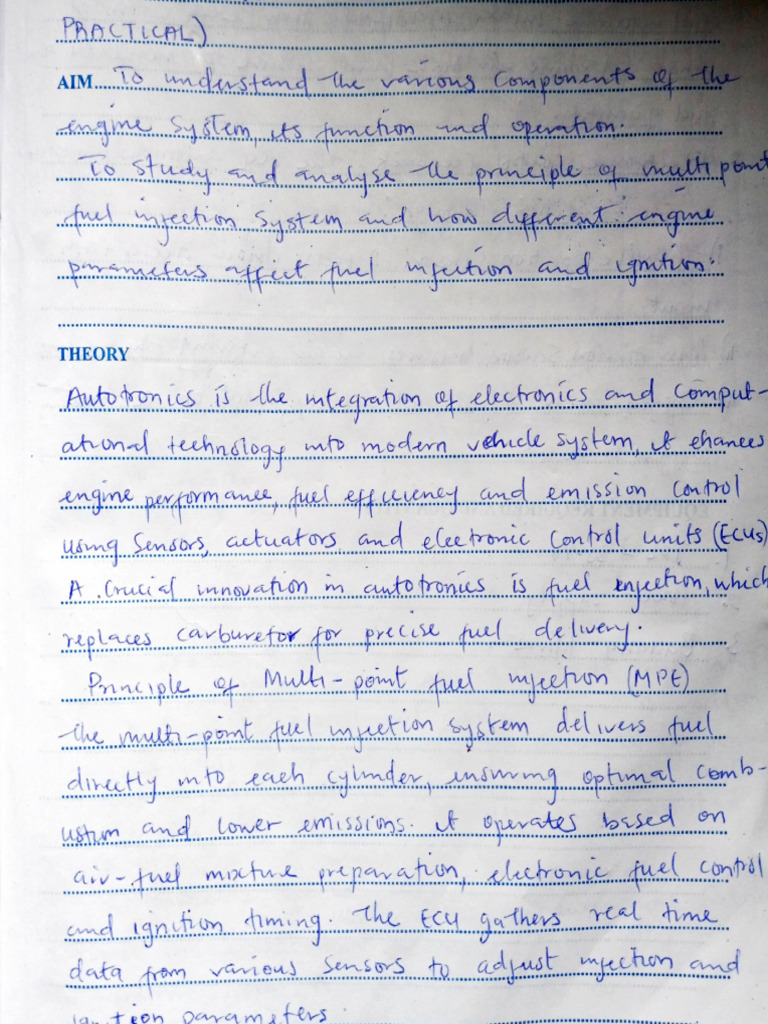 PRACTICAL)
AIM To understand the various Components of the
engine System, its function and operation.
To study and analyse the principle of multi point
fuel injection System and how different engine
parameters affect fuel injection and ignition.
THEORY
Autotronics is the integration of electronics and Comput-
ational technology into modern vehicle system, it ehances
engine performance, fuel efficiency and emission Control
using Sensors, actuators and electronic Control units (ECUs)
A Crucial innovation in autotronics is fuel enjection, which
replaces carburetor for precise fuel delivery.
Principle of Multi-point fuel injection (MPE)
The multi-point fuel injection system delivers fuel
directly into each cylinder, ensuring optimal comb-
ustion and lower emissions. it operates based on
air-fuel mixture preparation, electronic fuel control
and ignition timing. The ECU gathers real time
data from various Sensors to adjust injection and
ignition parameters.